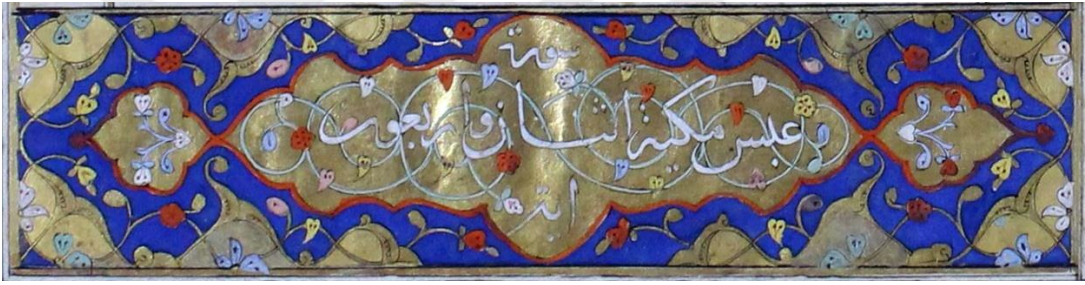 سورة
عبس مكية اثنان واربعون
اية